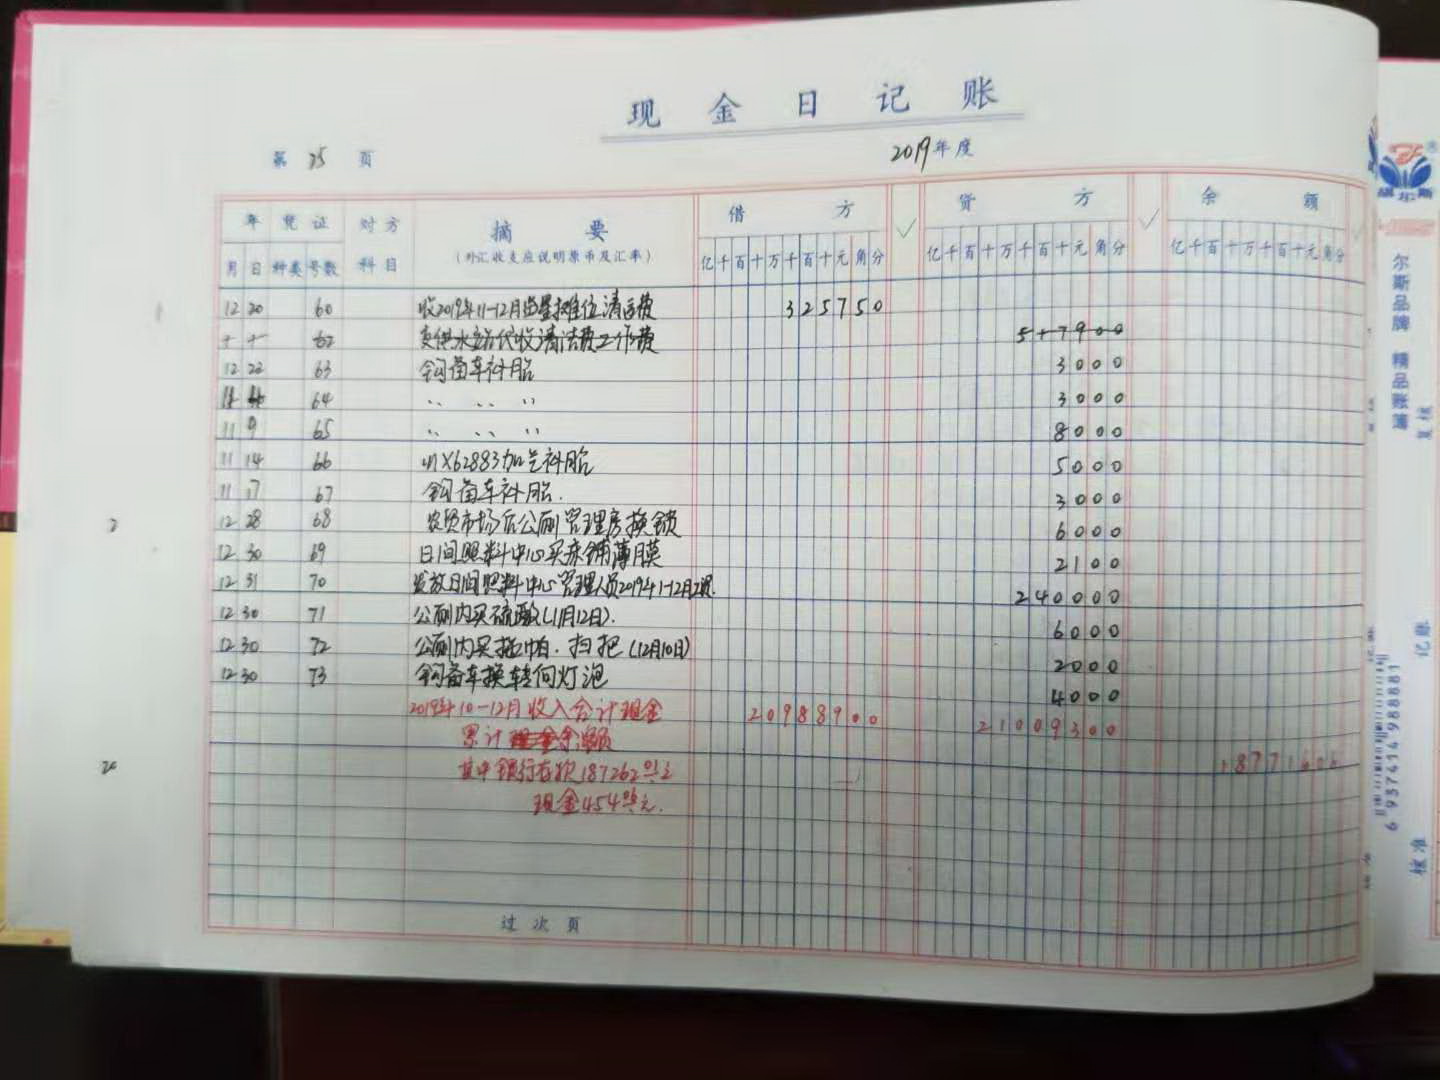 现金日记账
第 25 页
2019年度
年 凭证 对方 摘要 借方 ✓ 贷方 ✓ 余额
月 日 种类 号数 科目 (外汇收支应说明原币及汇率) 亿千百十万千百十元角分 亿千百十万千百十元角分 亿千百十万千百十元角分
12 20 60 收2019年11-12月 摊位清洁费 325750
62 供水站代收清洁费工作费 57900
12 22 63 钩备车补胎 3000
11 64 〃 〃 〃 3000
11 9 65 〃 〃 〃 8000
11 14 66 川X62883加气补胎 5000
11 17 67 钩备车补胎. 3000
12 28 68 农贸市场后公厕管理房换锁 6000
12 30 69 日间照料中心买床铺薄膜 2100
12 31 70 发放日间照料中心管理人员2019年1-12月工资. 240000
12 30 71 公厕内买硫酸(11月12日). 6000
12 30 72 公厕内买拖帕.扫把(12月10日) 2000
12 30 73 钩备车换转向灯泡 4000
2019年10-12月收入合计现金 20988900 21009300
累计 余额 18771606
其中银行存款187262元
现金454元.
过次页
尔斯品牌 精品账簿
复核
记账
核准
6 937414 988881
2
20